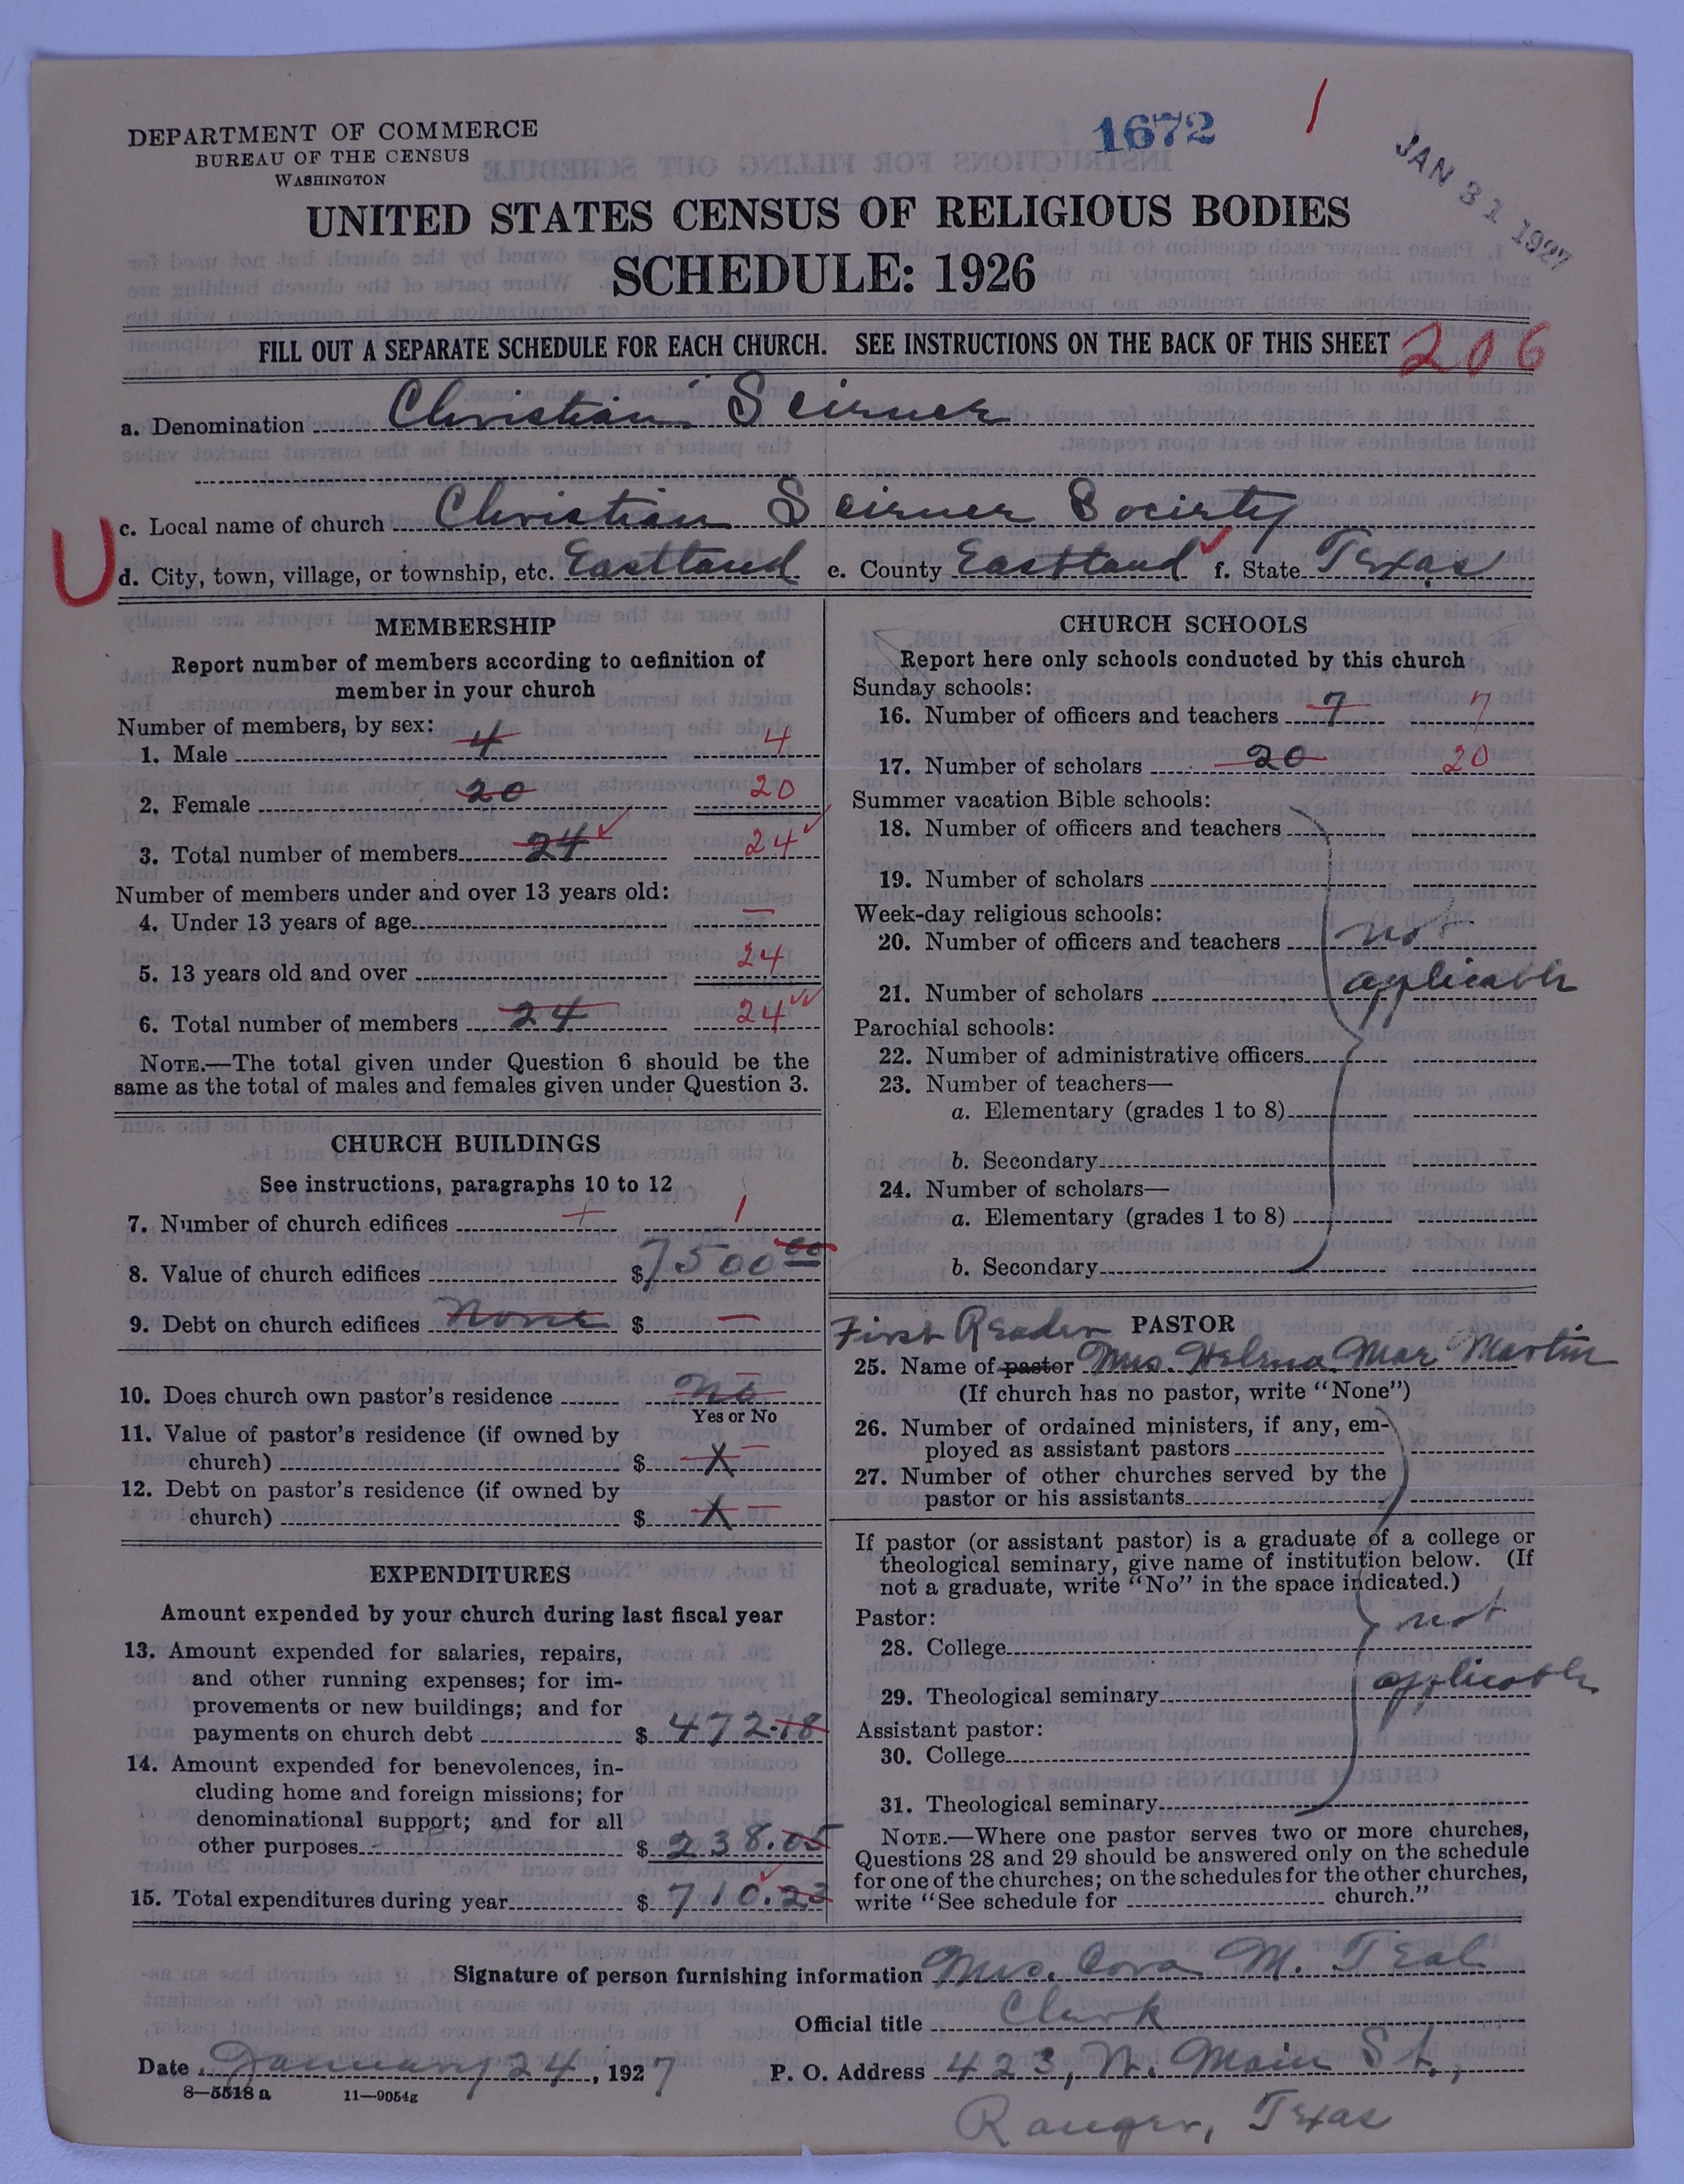 1672
JAN 31 1927
DEPARTMENT OF COMMERCE
BUREAU OF THE CENSUS
WASHINGTON
UNITED STATES CENSUS OF RELIGIOUS BODIES
SCHEDULE: 1926
FILL OUT A SEPARATE SCHEDULE FOR EACH CHURCH. SEE INSTRUCTIONS ON THE BACK OF THIS SHEET 206
a. Denomination Christian Science
c. Local name of church Christian Science Society
U
d. City, town, village, or township, etc. Eastland e. County Eastland f. State Texas
MEMBERSHIP
Report number of members according to definition of
member in your church
Number of members, by sex:
1. Male 4 4
2. Female 20 20
3. Total number of members 24 24
Number of members under and over 13 years old:
4. Under 13 years of age —
5. 13 years old and over 24
6. Total number of members 24 24
NOTE.—The total given under Question 6 should be the
same as the total of males and females given under Question 3.
CHURCH BUILDINGS
See instructions, paragraphs 10 to 12
7. Number of church edifices 1 1
8. Value of church edifices $7500 00
9. Debt on church edifices None $ —
10. Does church own pastor's residence No
Yes or No
11. Value of pastor's residence (if owned by
church) $ X —
12. Debt on pastor's residence (if owned by
church) $ X —
EXPENDITURES
Amount expended by your church during last fiscal year
13. Amount expended for salaries, repairs,
and other running expenses; for im-
provements or new buildings; and for
payments on church debt $ 472.18
14. Amount expended for benevolences, in-
cluding home and foreign missions; for
denominational support; and for all
other purposes $ 238.05
15. Total expenditures during year $ 710.23
CHURCH SCHOOLS
Report here only schools conducted by this church
Sunday schools:
16. Number of officers and teachers 7 7
17. Number of scholars 20 20
Summer vacation Bible schools:
18. Number of officers and teachers
19. Number of scholars
Week-day religious schools:
20. Number of officers and teachers not
21. Number of scholars applicable
Parochial schools:
22. Number of administrative officers
23. Number of teachers—
a. Elementary (grades 1 to 8)
b. Secondary
24. Number of scholars—
a. Elementary (grades 1 to 8)
b. Secondary
First Reader PASTOR
25. Name of pastor Mrs. Helena Mae Martin
(If church has no pastor, write "None")
26. Number of ordained ministers, if any, em-
ployed as assistant pastors
27. Number of other churches served by the
pastor or his assistants
If pastor (or assistant pastor) is a graduate of a college or
theological seminary, give name of institution below. (If
not a graduate, write "No" in the space indicated.)
Pastor: not
28. College
29. Theological seminary applicable
Assistant pastor:
30. College
31. Theological seminary
NOTE.—Where one pastor serves two or more churches,
Questions 28 and 29 should be answered only on the schedule
for one of the churches; on the schedules for the other churches,
write "See schedule for church."
Signature of person furnishing information Mrs. Cora M. Teal
Official title Clerk
Date January 24, 1927 P. O. Address 423, N. Main St.,
8—5518 a 11—9054g
Ranger, Texas